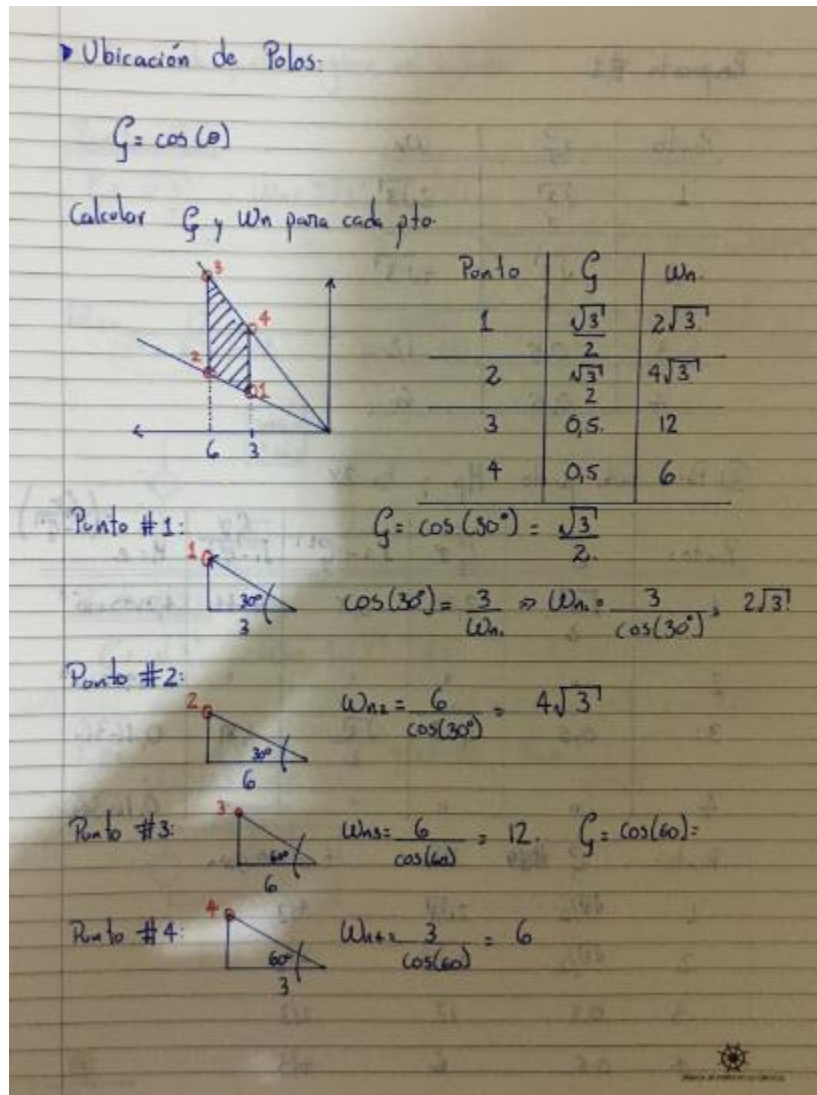 Ubicación de Polos:
ζ = cos(θ)
Calcular ζ y Wn para cada pto.
3
4
2
1
6 3
Punto ζ Wn.
1 √3/2 2√3
2 √3/2 4√3
3 0,5. 12
4 0,5 6
Punto #1: ζ = cos(30°) = √3/2.
1
30°
3
cos(30°) = 3/Wn. => Wn. = 3/cos(30°), 2√3
Punto #2:
2
30°
6
Wn2 = 6/cos(30°) = 4√3
Punto #3:
3
60°
6
Wn3 = 6/cos(60) = 12. ζ = cos(60) =
Punto #4:
4
60°
3
Wn4 = 3/cos(60) = 6